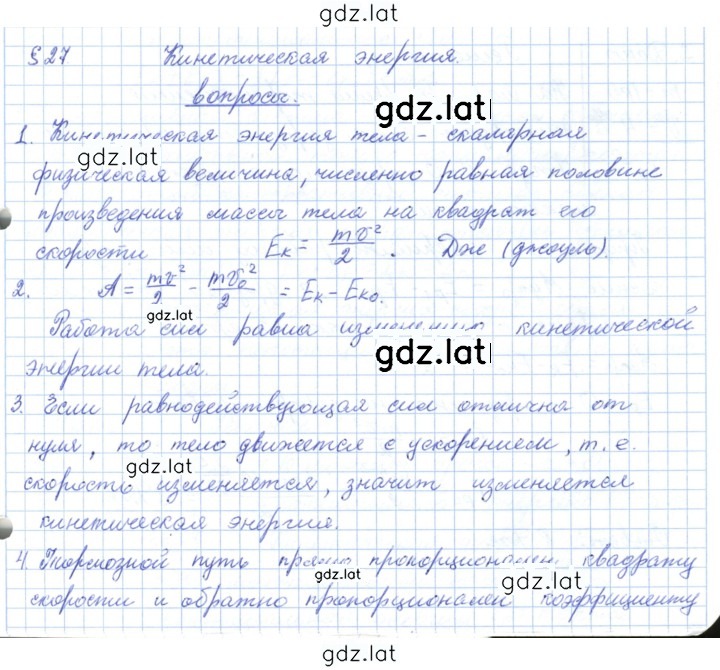 gdz.lat
§27 Кинетическая энергия.
вопросы.
gdz.lat
1. Кинетическая энергия тела - скалярная
gdz.lat
физическая величина, численно равная половине
произведения массы тела на квадрат его
скорости Eк = mv²/2 . Дж (джоуль).
2. A = mv²/2 - mv₀²/2 = Eк - Eк₀.
gdz.lat
Работа сил равна изменению кинетической
gdz.lat
энергии тела.
3. Если равнодействующая сил отлична от
нуля, то тело движется с ускорением, т.е.
gdz.lat
скорость изменяется, значит изменяется
кинетическая энергия.
4. Тормозной путь прямо пропорционален квадрату
gdz.lat gdz.lat
скорости и обратно пропорционален коэффициенту
gdz.lat